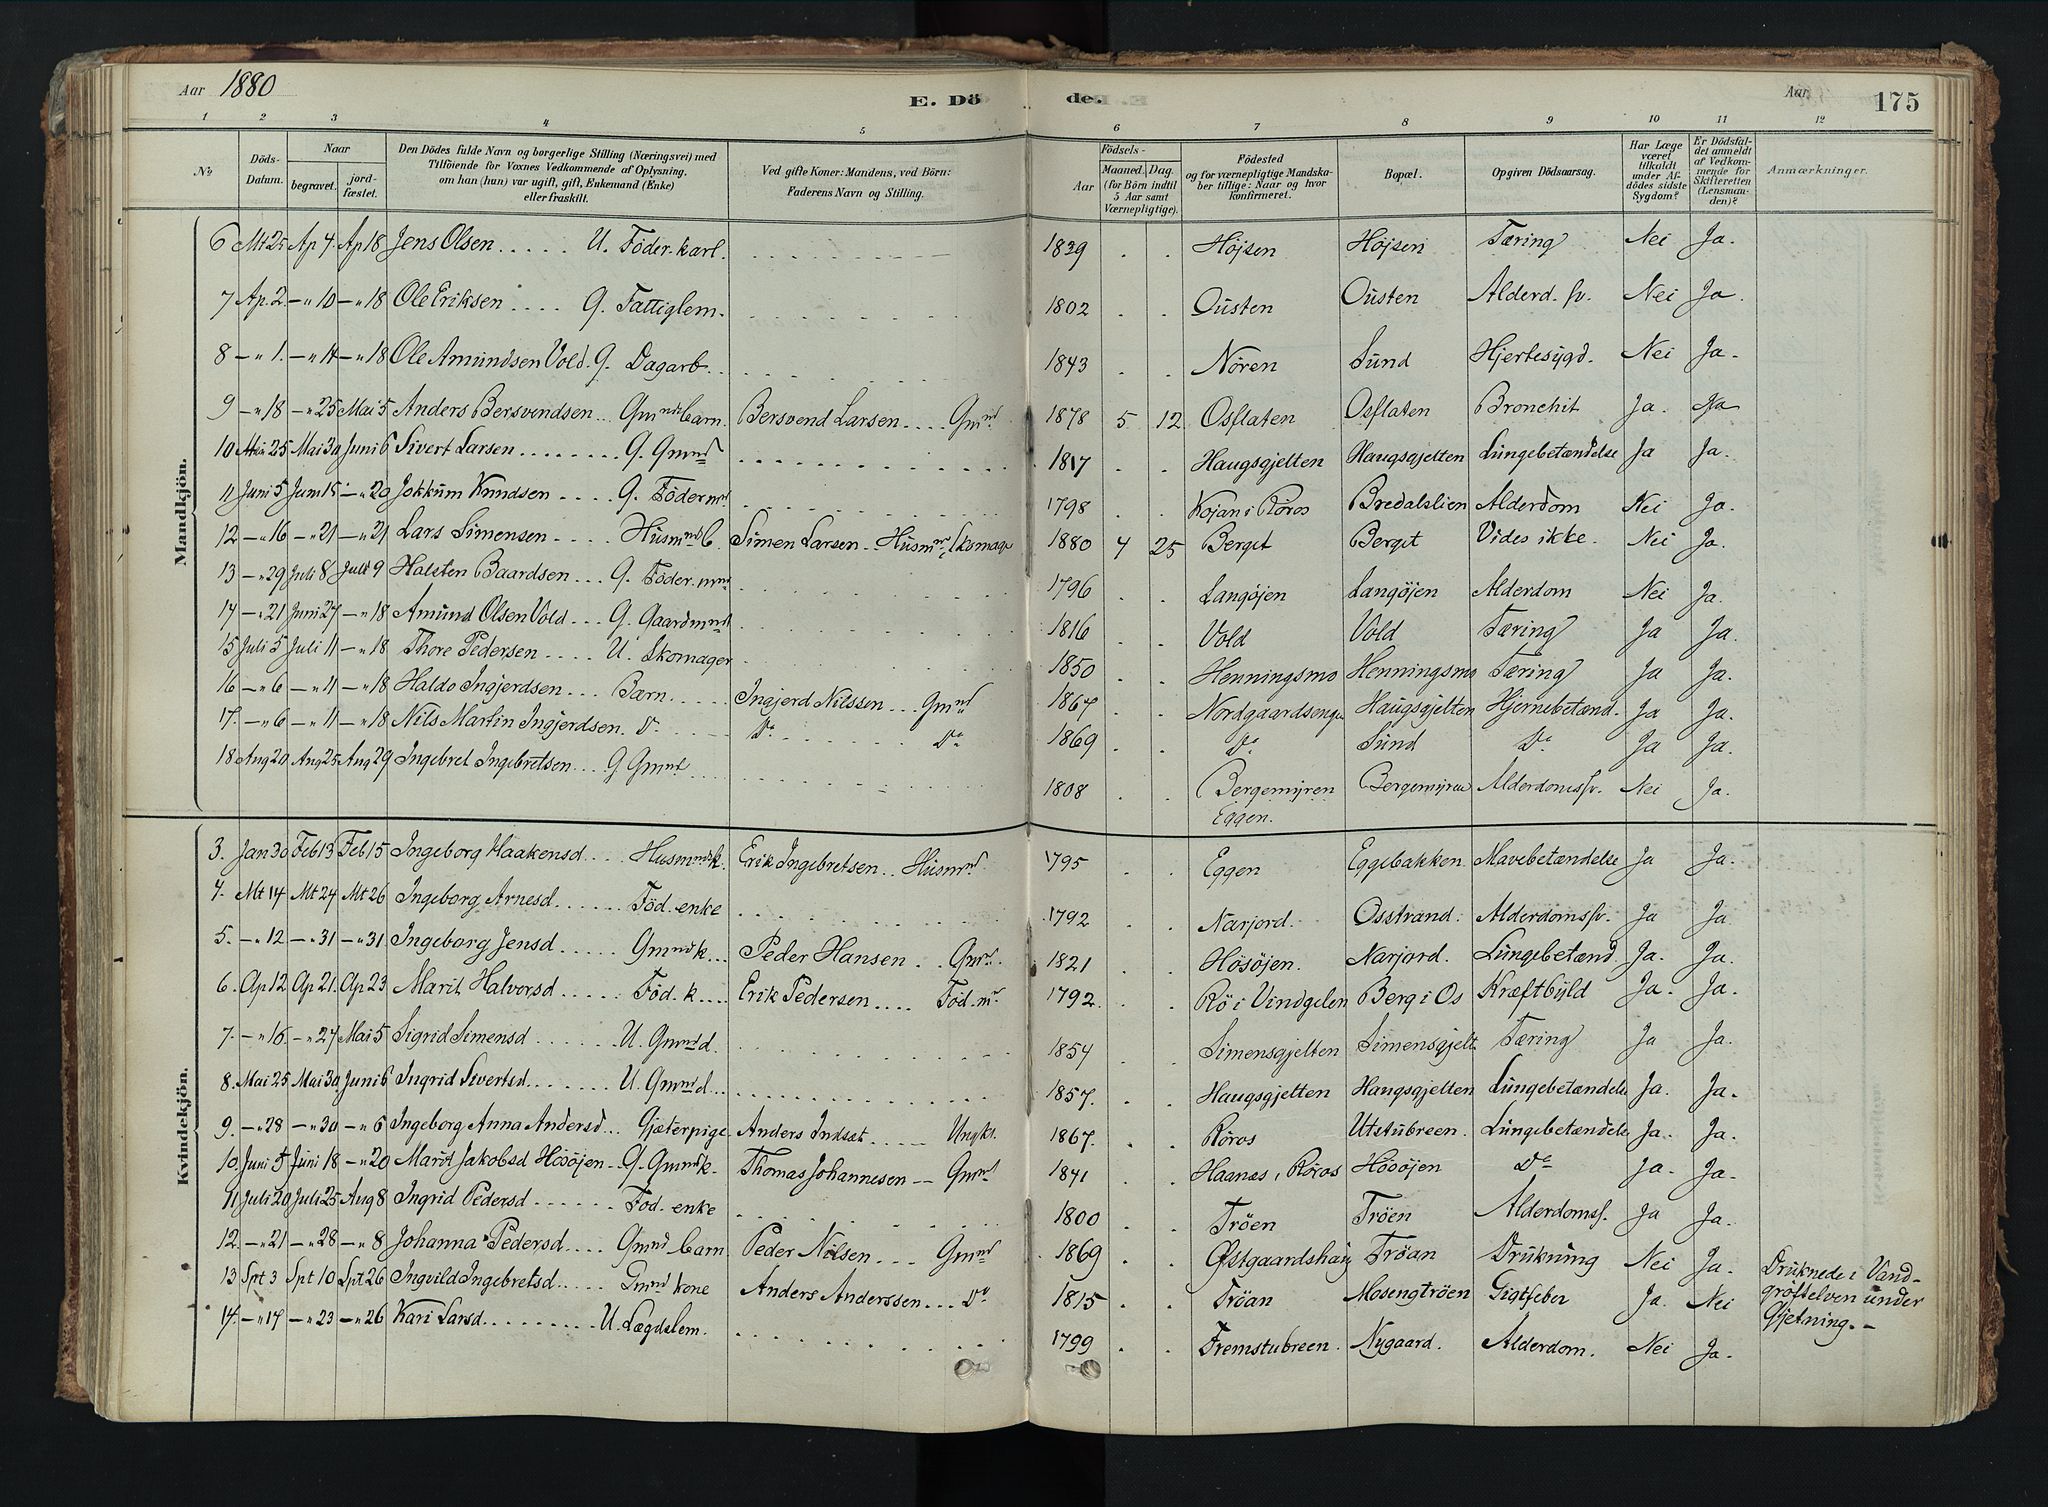 Aar 1880 E. Dö de. Aar 175
1 2 3 4 5 6 7 8 9 10 11 12
№ Döds-Datum. Naar begravet. jord-fæstet. Den Dödes fulde Navn og borgerlige Stilling (Næringsvei) med Tilföiende for Voxnes Vedkommende af Oplysning, om han (hun) var ugift, gift, Enkemand (Enke) eller fraskilt. Ved gifte Koner: Mandens, ved Börn: Faderens Navn og Stilling. Födsels- Aar Maaned. Dag. (for Börn indtil 5 Aar samt Værnepligtige). Födested og for værnepligtige Mandska-ber tillige: Naar og hvor konfirmeret. Bopæl. Opgiven Dödsaarsag. Har Læge været tilkaldt under Af-dödes sidste Sygdom? Er Dödsfal-det anmeldt af Vedkom-mende for Skifteretten (Lensman-den)? Anmærkninger.
Mandkjön.
6 Mt 25 Ap 4. Ap 18 Jens Olsen ..... U. Föder-karl. 1839 . . Højsen Højsen Tæring Nei Ja.
7 Ap. 2. — " 10 — " 18 Ole Eriksen .... G. Fattiglem. 1802 . . Ousten Ousten Alderd. sv. Nei Ja.
8 — " 1. — " 4 — " 18 Ole Amundsen Vold. G. Dagarb.. 1843 . . Nören Sund Hjertesygd. Nei Ja.
9 — " 18 — " 25 Mai 5 Anders Bersvendsen ... Gmnds barn. Bersvend Larsen .... Gmnd. 1878 5 12 Osflaten Osflaten Bronchit Ja. Ja
10 Mai 25 Mai 30 Juni 6 Sivert Larsen ........ G. Gmnd 1817 . . Haugsgjelten Haugsgjelten Lungebetændelse Ja Ja.
11 Juni 5 Juni 15 — " 20 Jokkum Knudsen .... G. Födermnd. 1798 . . Kojan i Röros Bredalslien Alderdom Nei Ja.
12 — " 16 — " 21 — " 21 Lars Simensen .... Husmnd b. Simen Larsen - Husmnd, Skomager 1880 4 25 Berget Berget Vides ikke. Nei Ja.
13 — " 29 Juli 8 Juli 9 Halsten Baardsen ... G. Föder.mnd 1796 . . Langøjen Langøjen Alderdom Nei Ja.
14 — " 21 Juni 27 — " 18 Amund Olsen Vold ... G. Gaardmnd 1816 . . Vold Vold Tæring Ja Ja.
15 Juli 5 Juli 11 — " 18 Thore Pedersen .... U. Skomager 1850 . . Henningsmo Henningsmo Tæring Ja Ja.
16 — " 6 — " 11 — " 18 Haldo Ingjerdsen ... Barn. Ingjerd Nilssen ... Gmnd 1867 . . Nordgaardsengen Haugsgjelten Hjernebetænd. Ja Ja.
17. — " 6 — " 11 — " 18 Nils Martin Ingjerdsen. Do Do Do 1869 . . Do Sund Do. Ja Ja.
18 Aug 20 Aug 25 Aug 29 Ingebret Ingebretsen ... G Gmnd. 1808 . . Bergemyren Bergemyren Alderdomssv. Nei Ja.
Eggen.
Kvindekjön.
3. Jan 30 Feb 13 Feb 15 Ingeborg Haakensd .... Husmnds k. Erik Ingebretsen .. Husmnd 1795 . . Eggen Eggebakken. Mavebetændelse Ja Ja.
4. Mt 14 Mt 24 Mt 26 Ingeborg Arnesd ...... Föd. enke 1792 . . Narjord. Osstrand. Alderdomssv. Ja Ja
5. — " 12 — " 31 — " 31 Ingeborg Jensd ...... Gmnds k... Peder Hansen .. Gmnd. 1821 . . Hösöjen. Narjord. Lungebetænd. Ja. Ja.
6. Ap 12 Ap 21. Ap 23 Marit Halvorsd ..... Föd. k .... Erik Pedersen .... Föd. md 1792. . . Rö i Vindgelen Berg i Os Kræftbyld Ja. Ja.
7. — " 16. — " 27 Mai 5 Sigrid Simensd ..... U. Gmnd d. 1854 . . Simensgjelten Simensgjelt. Tæring Ja Ja.
8. Mai 25 Mai 30 Juni 6 Ingrid Sivertsd ....... U. Gmnd d. 1857. . . Haugsgjelten Haugsgjelten Lungebetændelse Ja. Ja.
9. — " 28 — " 30 — " 6 Ingeborg Anna Andersd .. Gjæterpige Anders Indsæt ...... Ungk. 1867. . . Röros Utstubreen. Lungebetændelse Ja. Ja.
10. Juni 5 Juni 18 — " 20 Marit Jakobsd Hösöjen - G. Gmnds k. Thomas Johannesen -- Gmnd 1841 . . Haanæs i Röros Hösöjen Do Ja. Ja.
11 Juli 20 Juli 25 Aug 8 Ingrid Pedersd ....... Föd. enke 1800 . . Tröen Tröen Alderdomss. Ja Ja.
12. — " 21 — " 28 — " 8 Johanna Pedersd .... Gmnd barn Peder Nilsen ... Gmnd 1869 . . Østgaardshaug Tröan Drukning Nei Ja. Druknede i Vand-
13 Spt 3 Spt 10 Spt 26 Ingvild Ingebretsd ..... Gmnd kone Anders Anderssen ... Do 1815 . . Tröan Mosengtröen Gigtfeber Ja. Nei gröftelven under
14. — " 17 — " 23 — " 26 Kari Larsd ......... U. Lægdslem. 1799 . . Fremstubreen. Nygaard. Alderdom. Nei Ja. Gjetning. —